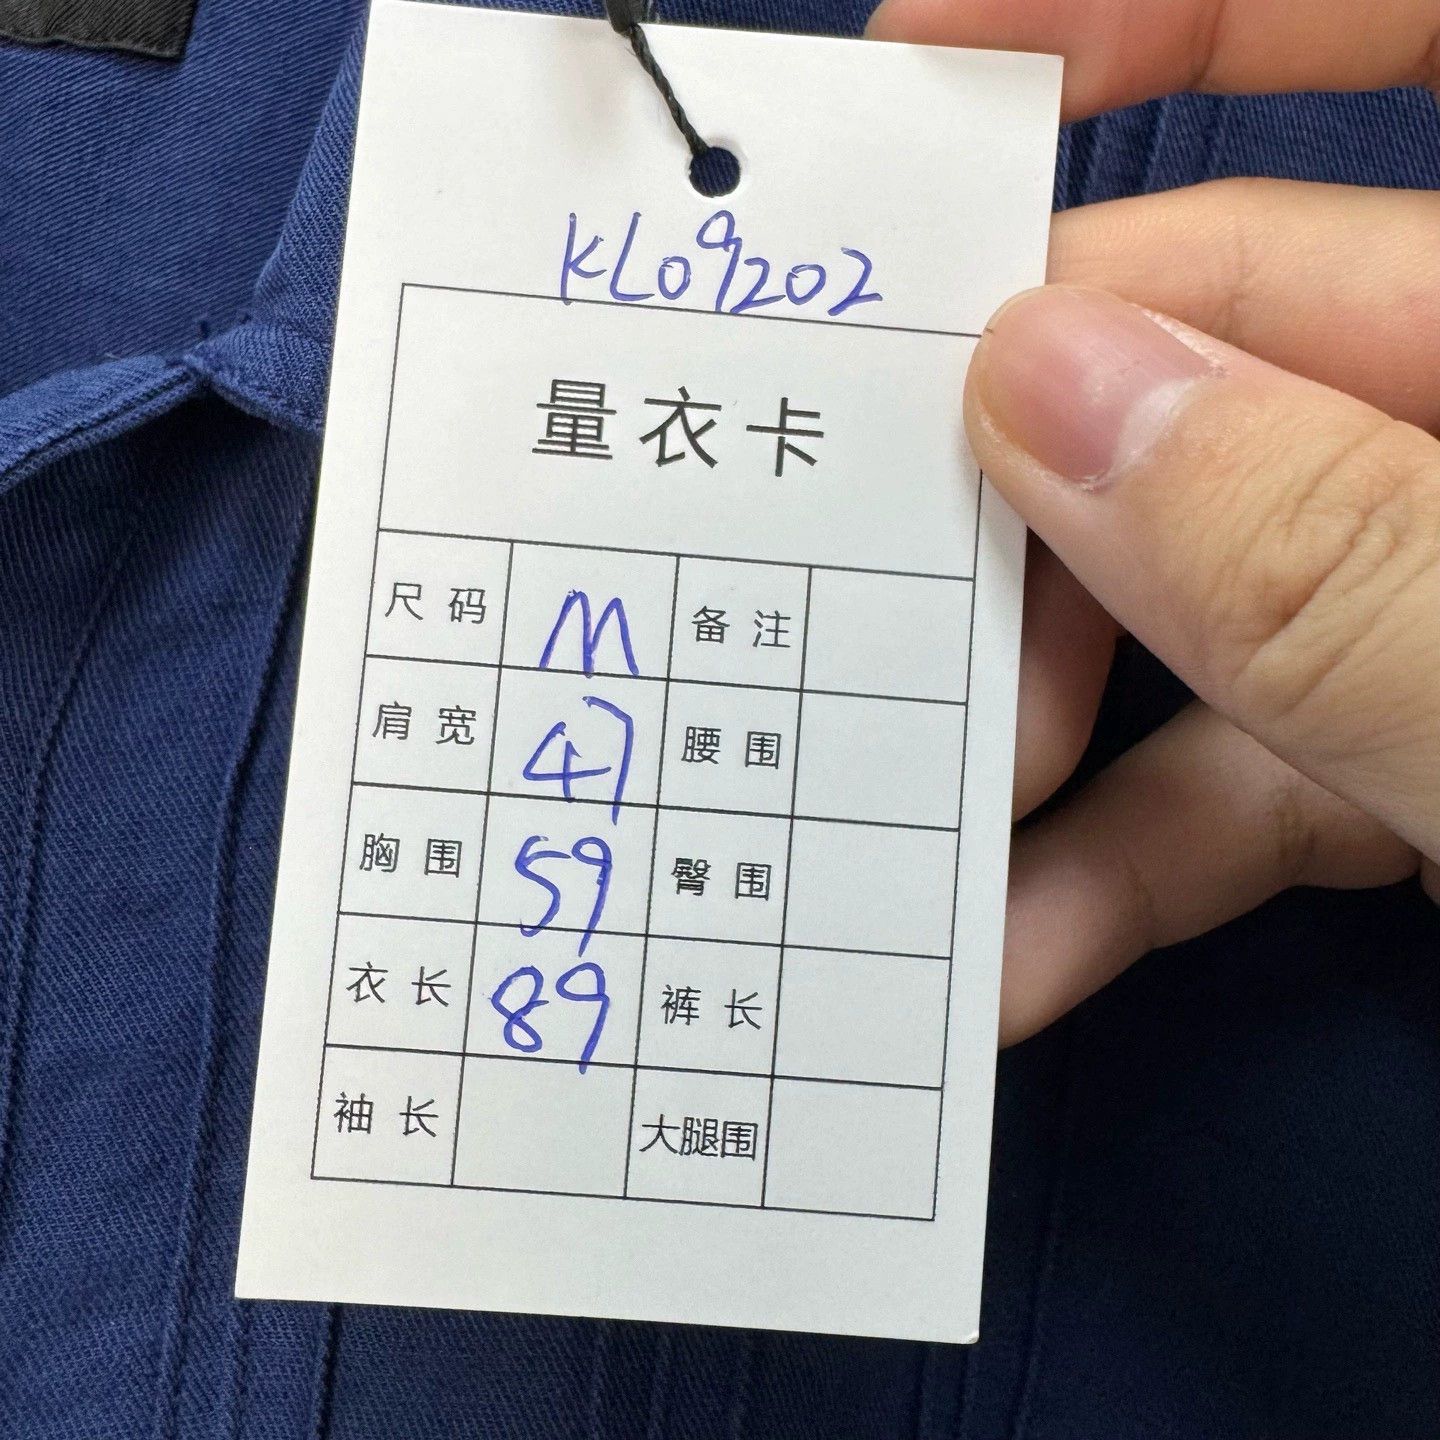 KL09202
量衣卡
尺码 M 备注
肩宽 47 腰围
胸围 59 臀围
衣长 89 裤长
袖长 大腿围